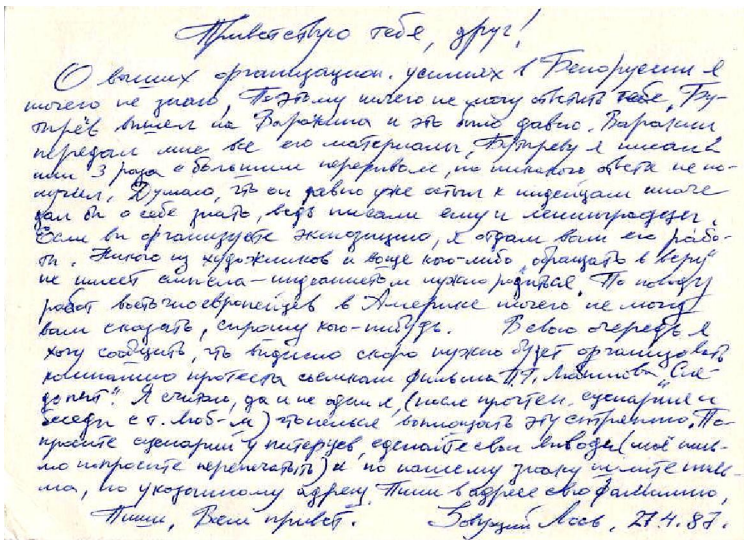 Приветствую тебя, друг!
О ваших организацион. усилиях в Белоруссии я
ничего не знаю, Поэтому ничего не могу ответить тебе, Бу-
тырёв вышел на Варакина и это было давно. Варакин
передал мне все его материалы, Бутыреву я писал 2
или 3 раза с большим перерывом, но никакого ответа не по-
лучил, Думаю, что он давно уже остыл к индейцам иначе
дал бы о себе знать, ведь писали ему и ленинградцы.
Если вы организуете экспозицию, я отдам вам его рабо-
ты. Никого из художников и ваще кого-либо "обращать в веру"
не имеет смысла - индеанистом нужно родиться. По поводу
работ восточноевропейцев в Америке ничего не могу
вам сказать, спрошу кого-нибудь. В свою очередь я
хочу сообщить, что видимо скоро нужно будет организовать
компанию протеста съемкам фильма П.Г. Любимова "Сле-
допыт". Я считаю, да и не один я, (после прочтен. сценария и
беседы с т. Люб-м) что нельзя воплощать эту стряпню. По-
просите сценарий у питерцев, сделайте свои выводы (моё пись-
мо попросите перепечатать) и по нашему знаку шлите пись-
ма, по указанному адресу. Пиши в адресе свою фамилию,
Пиши, Всем привет. Зовущий Лось, 27.4.87.